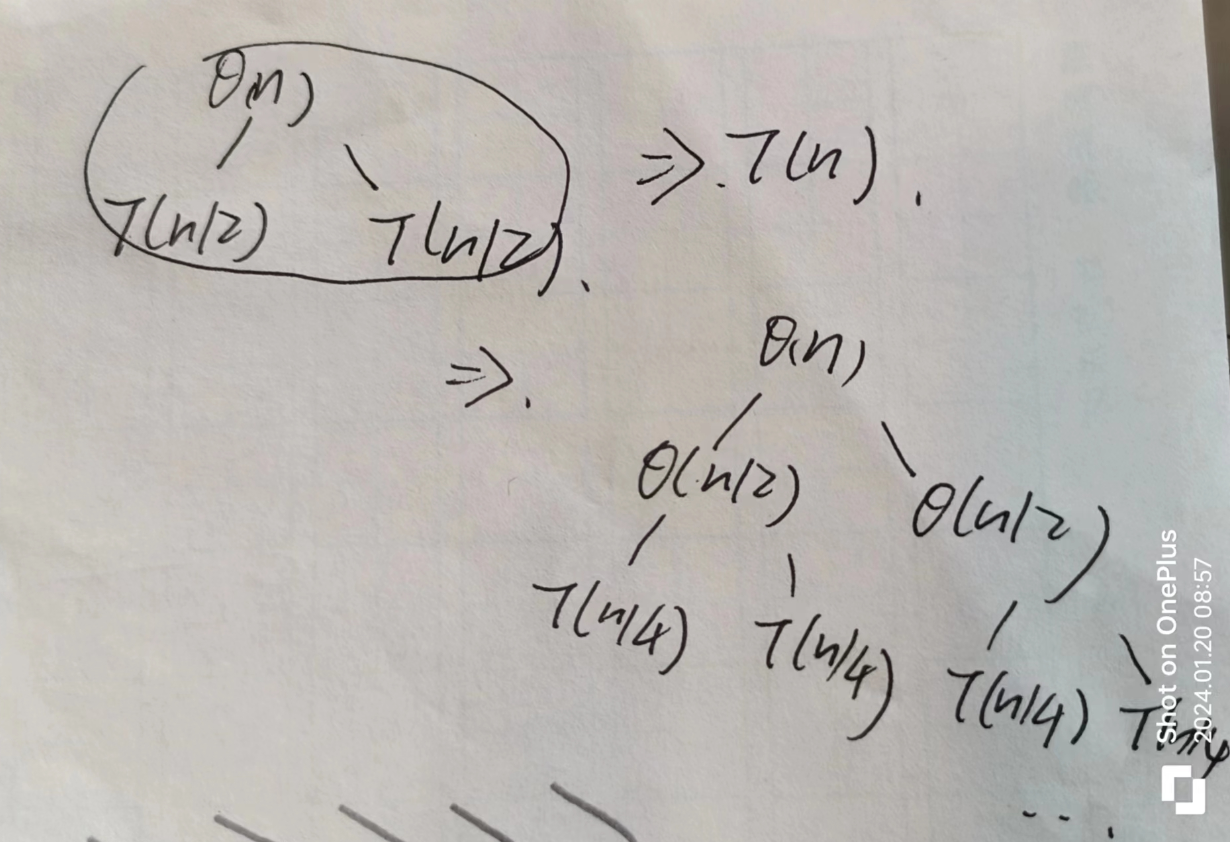 θ(n)
T(n/2) T(n/2).
⇒. T(n).
⇒.
θ(n)
θ(n/2) θ(n/2)
T(n/4) T(n/4) T(n/4) T(n/4
...
Shot on OnePlus
2024.01.20 08:57